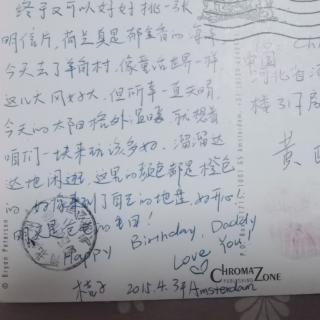 终于又可以好好挑一张
明信片,荷兰真是郁金香的海洋
今天去了羊角村,像童话世界一样
这儿大风好大,但所幸一直天晴
今天的太阳格外温暖,就想着
咱们一块来玩该多好。溜溜达
达地闲逛,这里的颜色都是橙色
的,好像到了自己的地盘,好开心!
明天是爸爸的生日!
Happy Birthday, Daddy
Love You
桔子 2015.4.3于Amsterdam
CHROMAZONE
PUBLISHING
© Bryan Peterson
中国
河北
楼317
黄